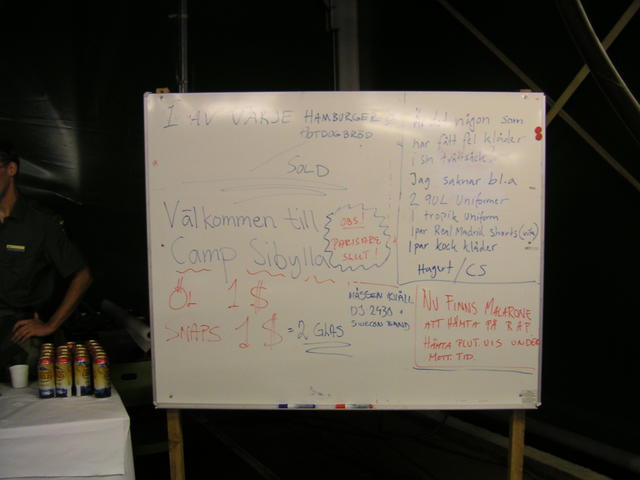 1 AV VARJE HAMBURGER &
HOTDOGBRÖD
SÅLD
Välkommen till
Camp Sibylla
OBS!
PARISARE
SLUT!
ÖL 1 $
SNAPS 1 $ = 2 GLAS
MÄSSEN KVÄLL
DJ 2430 +
SWECON BAND
Är det någon som
har fått fel kläder
i sin tvättsäck?
Jag saknar bl.a
2 90L Uniformer
1 tropik uniform
1 par Real Madrid shorts (vita)
1 par kock kläder
Hugut/CS
NU FINNS MALARONE
ATT HÄMTA PÅ R&P.
HÄMTA PLUT.VIS UNDER
MOTT. TID.